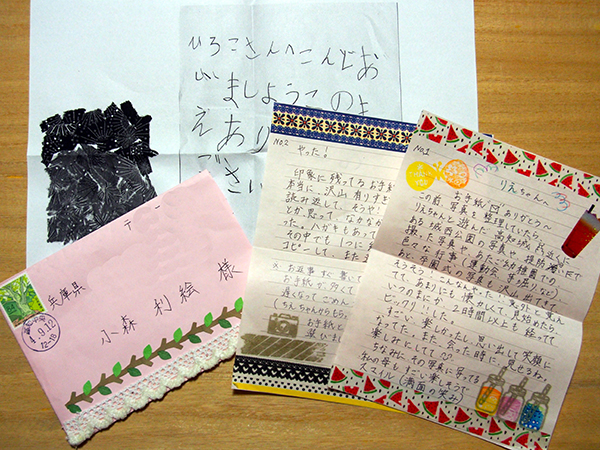 ひろこさんへこんどあ
びましようこのま
えあり
ござい
兵庫県
小森 利絵 様
4.9.12
12-18
NO.2
やった！
印象に残ってるお手紙
本当に、沢山有りす
読み返して、そうや
とか思って、なかな
った。ハガキもあって
その中でも1つに
コピーして、また
※お返事すぐ書いて
お手紙が多くて
遅くなってごめん
お手紙と
NO.1
りえちゃんへ
お手紙ありがとう〜
この前写真を整理していたら
りえちゃんと遊んだ高知城の近くに
ある城西公園の写真や堤防
撮った写真や、あたご幼稚園での
色々な行事(運動会等
卒園式の写真も沢山出てきて
そうそう！こんなんやった！
いつのまにか2時間以上も経ってて
ビックリした。
すごい楽しかったし、思い出して笑顔に
なってた。また会った時に見せるね。
楽しみにしてて♡
ちなみに、その写真に写ってる
私の顔もすごい楽しそうで
スマイル(満面の笑み)